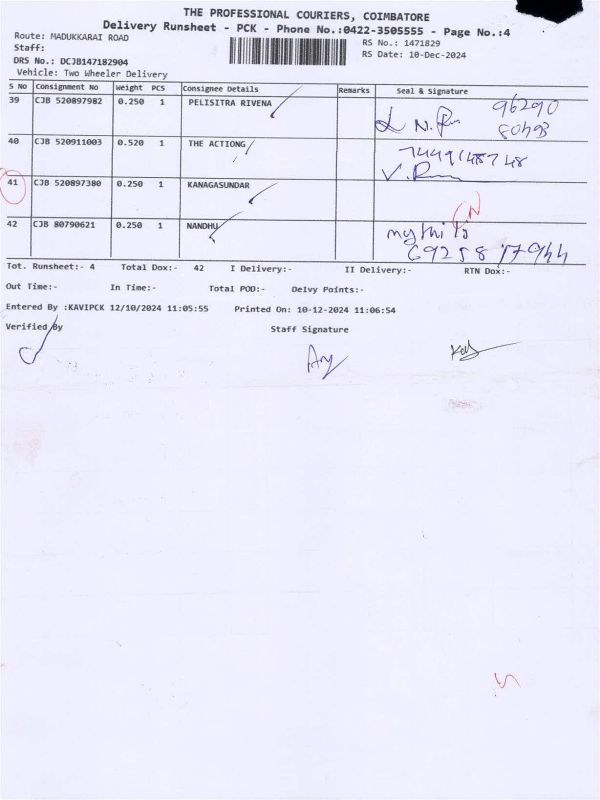 THE PROFESSIONAL COURIERS, COIMBATORE
Delivery Runsheet - PCK - Phone No.:0422-3505555 - Page No.:4
Route: MADUKKARAI ROAD
RS No.: 1471829
Staff:
RS Date: 10-Dec-2024
DRS No.: DCJB147182904
Vehicle: Two Wheeler Delivery
S No Consignment No Weight PCS Consignee Details Remarks Seal & Signature
39 CJB 520897982 0.250 1 PELISITRA RIVENA 96290
80493
40 CJB 520911003 0.520 1 THE ACTIONG 7449148748
41 CJB 520897380 0.250 1 KANAGASUNDAR
42 CJB 80790621 0.250 1 NANDHU mythi
Tot. Runsheet:- 4 Total Dox:- 42 I Delivery:- II Delivery:- RTN Dox:-
Out Time:- In Time:- Total POD:- Delvy Points:-
Entered By :KAVIPCK 12/10/2024 11:05:55 Printed On: 10-12-2024 11:06:54
Verified By Staff Signature